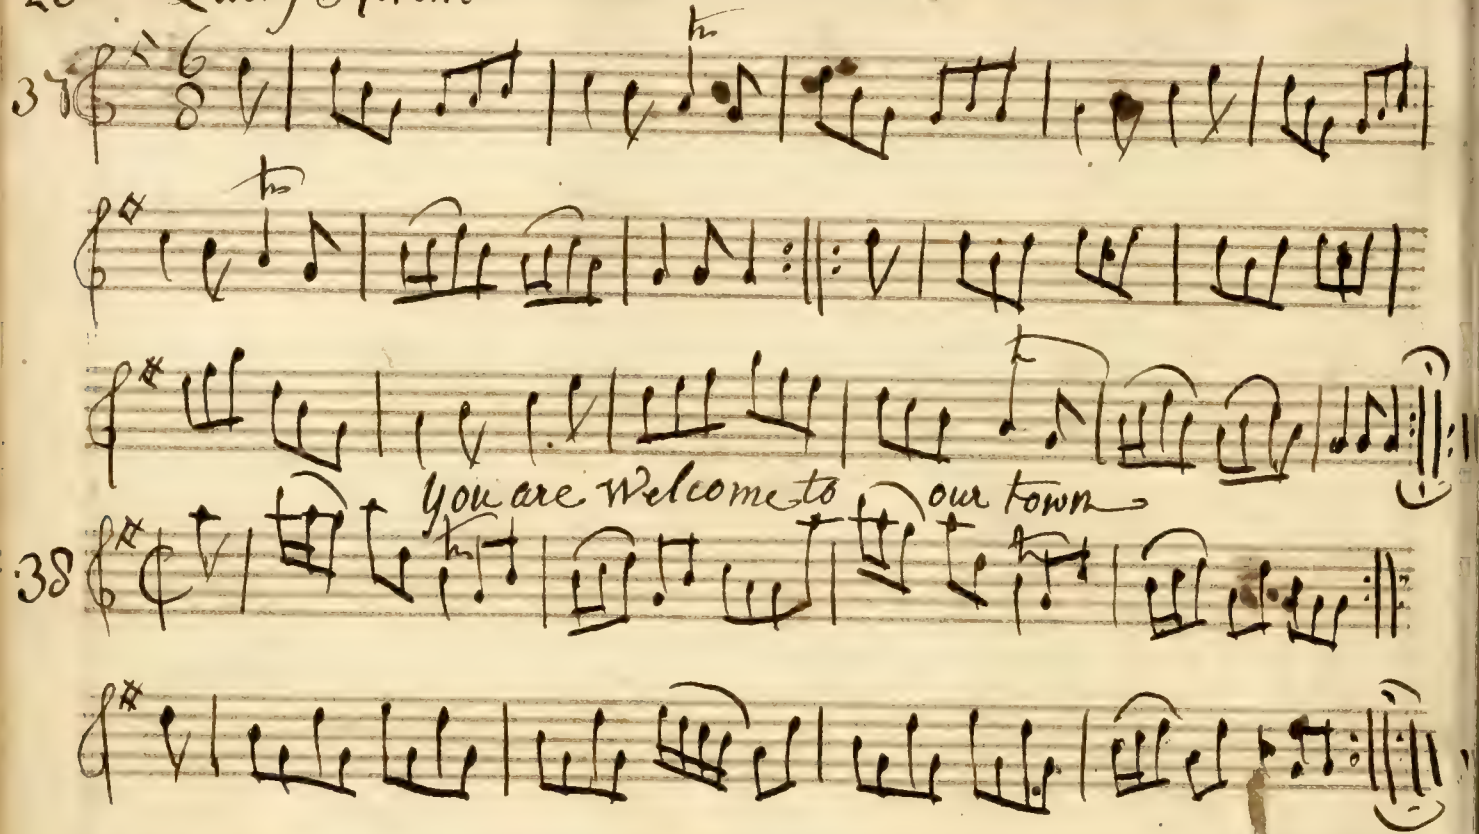 6
8
37
tr
tr
you are Welcome to our town
38